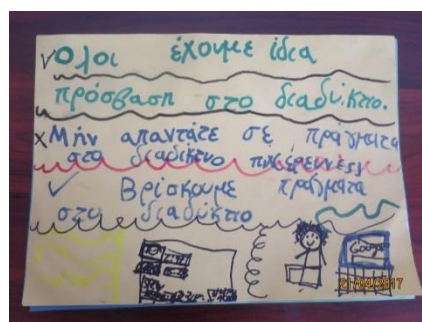 ✓Όλοι έχουμε ίδια
πρόσβαση στο διαδύκτιο.
xΜήν απαντάτε σε πράγματα
στο διαδίκτυο π.χ. έρευνες
✓ Βρίσκουμε πράγματα
στο διαδύκτιο
Google
21/04/2017